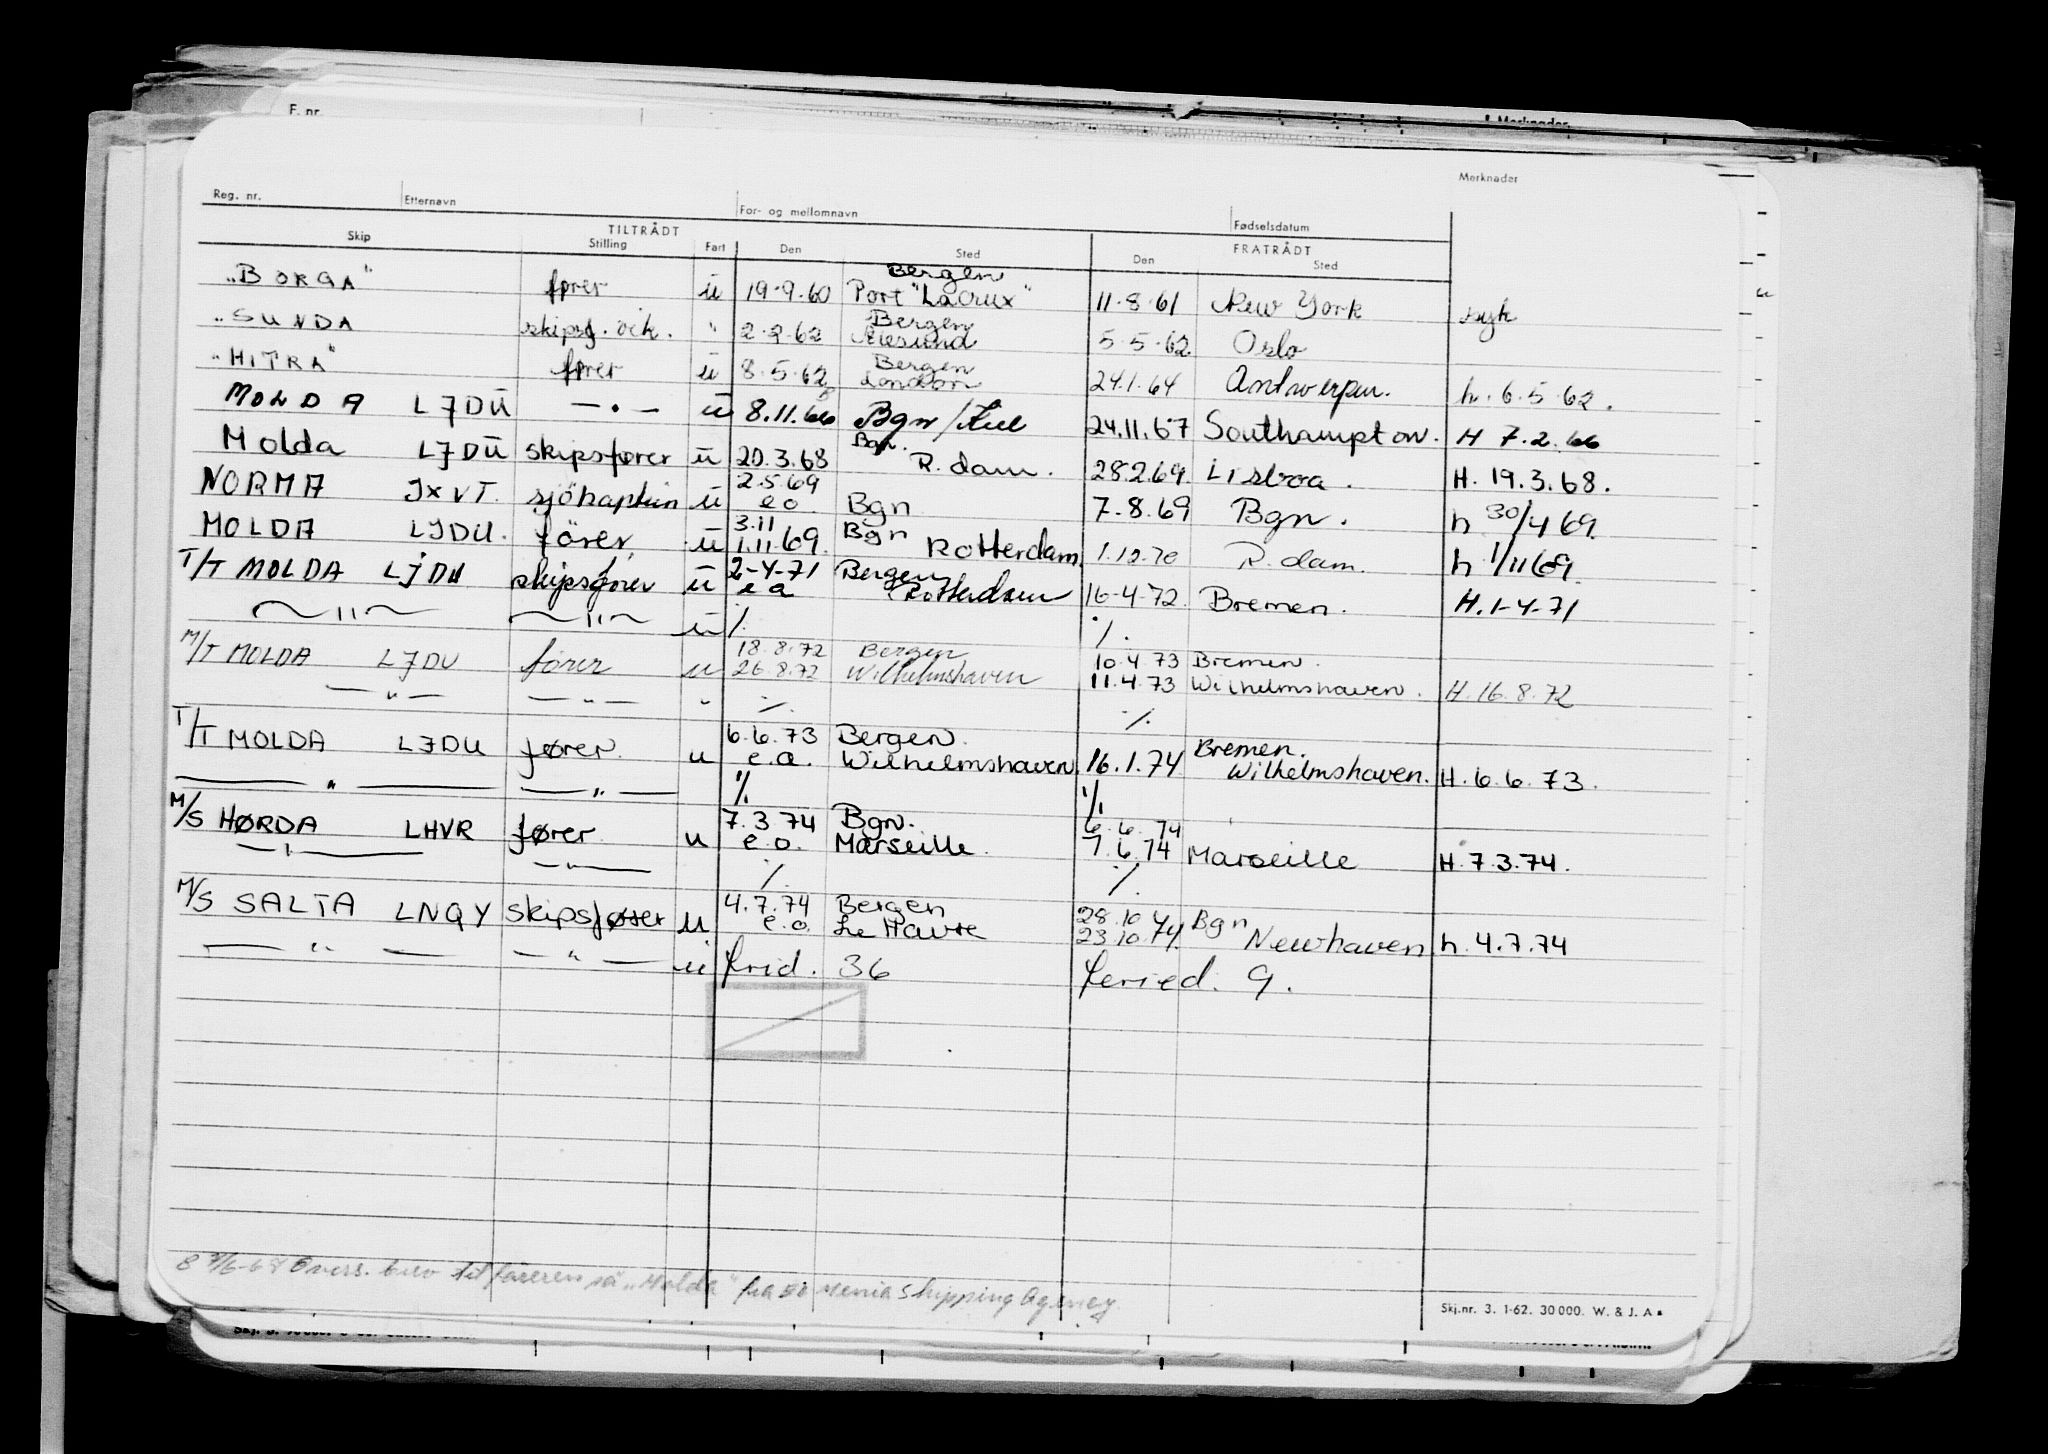 F. nr.
Merknader
Merknader
Reg. nr. Etternavn For- og mellomnavn Fødselsdatum
TILTRÅDT FRATRÅDT
Skip Stilling Fart Den Sted Den Sted
Bergen
"BORGA" fører ü 19.9.60 Port "LaCrux" 11.8.61 New York syk
Bergen
"SUNDA skipsf. vik. " 2.2.62 Ålesund 5.5.62 Oslo
Bergen
"HITRA" fører ü 8.5.62 London 24.1.64 Antwerpen. h. 6.5.62.
MOLDA LJDU — " — ü 8.11.66 Bgn/Kiel 24.11.67 Southampton. H 7.2.66
Molda LJDU skipsfører ü 20.3.68 Bgn. R.dam. 28.2.69. Lisboa. H. 19.3.68.
2.5.69
NORMA JXVT. sjökaptein ü e.o. Bgn 7.8.69 Bgn. h 30/4 69.
3.11 Bgn
MOLDA LJDU. förer, ü 1.11.69. Rotterdam. 1.12.70 R.dam. h 1/11 69.
2-4-71 Bergen
T/T MOLDA LJDU skipsfører ü e a Rotterdam 16-4-72. Bremen. H.1-4-71
— " — — " — ü ./. ./.
18.8.72 Bergen 10.4.73 Bremen.
M/T MOLDA LJDU fører u 26.8.72 Wilhelmshaven 11.4.73 Wilhelmshaven. H.16.8.72
— " — — " — " ./. ./.
6.6.73 Bergen. Bremen.
T/T MOLDA LJDU fører. u e.a. Wilhelmshaven. 16.1.74 Wilhelmshaven. H.6.6.73.
— " — — " — ./. ./.
7.3.74 Bgn. 6.6.74
M/S HØRDA LHVR fører. u e.o. Marseille. 7.6.74 Marseille H.7.3.74.
— " — — " — ./. ./.
4.7.74 Bergen 28.10.74 Bgn
M/S SALTA LNQY skipsfører u e.o. Le Havre 23.10.74. Newhaven h.4.7.74
— " — — " — ü frid. 36 feried. 9.
til føreren på "Molda" fra Shipping Agency
Skj.nr. 3. 1-62. 30000. W. & J. A.